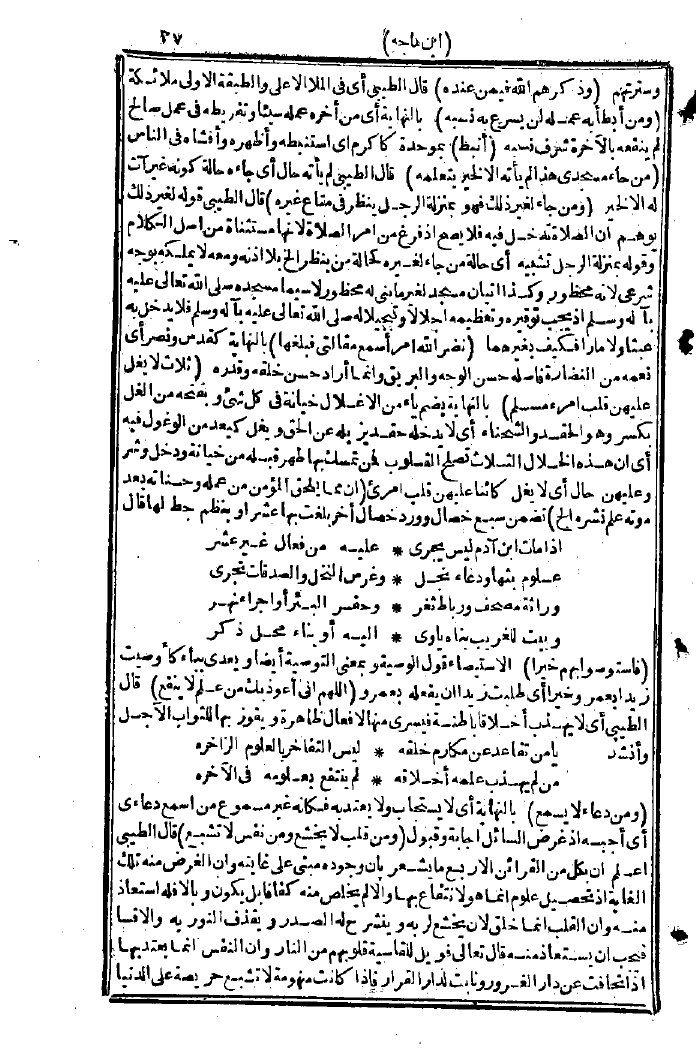 (ابن ماجه) ٢٧
وسترتهم (وذكرهم الله فيمن عنده) قال الطيبى أى فى الملا الاعلى والطبقة الاولى ملائكة
(ومن أبطأ به عمله لن يسرع به نسبه) بالنهاية أى من أخره عمله سيئا وتفريطه فى عمل صالح
لم ينفعه بالآخرة شرف نسبه (أنبط) بموحدة كاكرم اى استنبطه وأظهره وأفشاه فى الناس
(من جاء مسجدى هذا لم يأته الا لخير يتعلمه) قال الطيبى لم يأته حال أى جاءه حالة كونه غير آت
له الا لخير (ومن جاء لغير ذلك فهو بمنزلة الرجل ينظر فى متاع غيره) قال الطيبى قوله لغير ذلك
يوهم ان الصلاة تدخل فيه فلا يصح اذ فرغ من امر الصلاة لانها مستثناة من اصل الكلام
وقوله بمنزلة الرجل تشبيه أى حالة من جاء لغيره كحالة من ينظر الخ بلا اذنه ومعه لا يملكه بوجه
شرعى لانه محظور وكذا اتيان مسجد لغير مابنى له محظور لاسيما مسجده صلى الله تعالى عليه
بآ له وسلم اذ يجب توقيره وتعظيمه اجلالا وتبجيلا له صلى الله تعالى عليه بآله وسلم فلا يدخل به
عبثا ولا مارا فكيف بغيرهما (نضر الله امرأ سمع مقالتى فبلغها) بالنهاية كقدس ونصر أى
نعمه من النضارة فاصله حسن الوجه والبريق وانما أراد حسن خلقه وقدره (ثلاث لا يغل
عليهن قلب امرء مسلم) بالنهاية بضم ياء من الاغلال خيانة فى كل شئ و بفتحه من الغل
بكسر وهو الحقد والشحناء أى لا يدخله حقد يزيله عن الحق و يغل كيعد من الوغول فيه
أى ان هذه الخلال الثلاث تصلح القلوب فمن تمسك بها طهر قلبه من خيانة ودخل وشر
وعليهن حال أى لا يغل كائنا عليهن قلب امرئ (ان مما يلحق المؤمن من عمله وحسناته بعد
موته علم نشره الخ) تضمن سبع خصال وورد خصال أخر بلغت بها عشرا و بنظم جط لها قال
اذا مات ابن آدم ليس يجرى * عليه من فعال غير عشر
علوم بثها ودعاء نجل * وغرس النخل والصدقات تجرى
وراثة مصحف ورباط ثغر * وحفر البئر أو اجراء نهر
و بيت للغريب بناه ياوى * اليه أو بناء محل ذكر
(فاستوصوا بهم خيرا) الاستيصاء قبول الوصية و بمعنى التوصية أيضا و يعدى بباء كأوصيت
زيدا بعمر وخيرا أى طلبت زيدا ان يفعله بعمرو (اللهم انى أعوذ بك من علم لا ينفع) قال
الطيبى أى لا يهذب أخلاقا باطنة فيسرى منها الافعال ظاهرة و يفوز بها للثواب الآجل
وأنشد يامن تقاعد عن مكارم خلقه * ليس التفاخر بالعلوم الزاخره
من لم يهذب علمه أخلاقه * لم ينتفع بعلومه فى الآخره
(ومن دعاء لا يسمع) بالنهاية أى لا يستجاب ولا يعتد به فكانه غير مسموع من اسمع دعاءى
أى أجبه اذ غرض السائل اجابة وقبول (ومن قلب لا يخشع ومن نفس لا تشبع) قال الطيبى
اعلم ان بكل من القرائن الاربع مايشعر بان وجوده مبنى على غايته وان الغرض منه تلك
الغاية اذ تحصيل علوم انما هو لانتفاع بها والالم يخلص منه كفافا بل يكون و بالا فله استعاذ
منه وان القلب انما خلق لان يخشع لربه و ينشرح له الصدر و يقذف النور به والا قسا
فيجب ان يستعاذ منه قال تعالى فويل للقاسية قلوبهم من النار وان النفس انما يعتد بها
اذا تجافت عن دار الغرور ونابت لدار القرار فاذا كانت منهومة لا تشبع حريصة على الدنيا